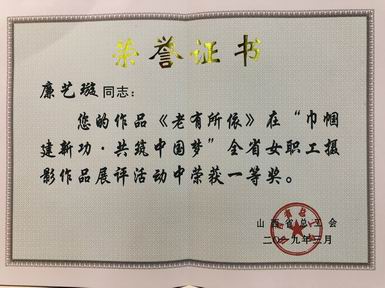 荣誉证书
廉艺璇同志：
您的作品《老有所依》在“巾帼
建新功·共筑中国梦”全省女职工摄
影作品展评活动中荣获一等奖。
山西省总工会
二〇一九年三月